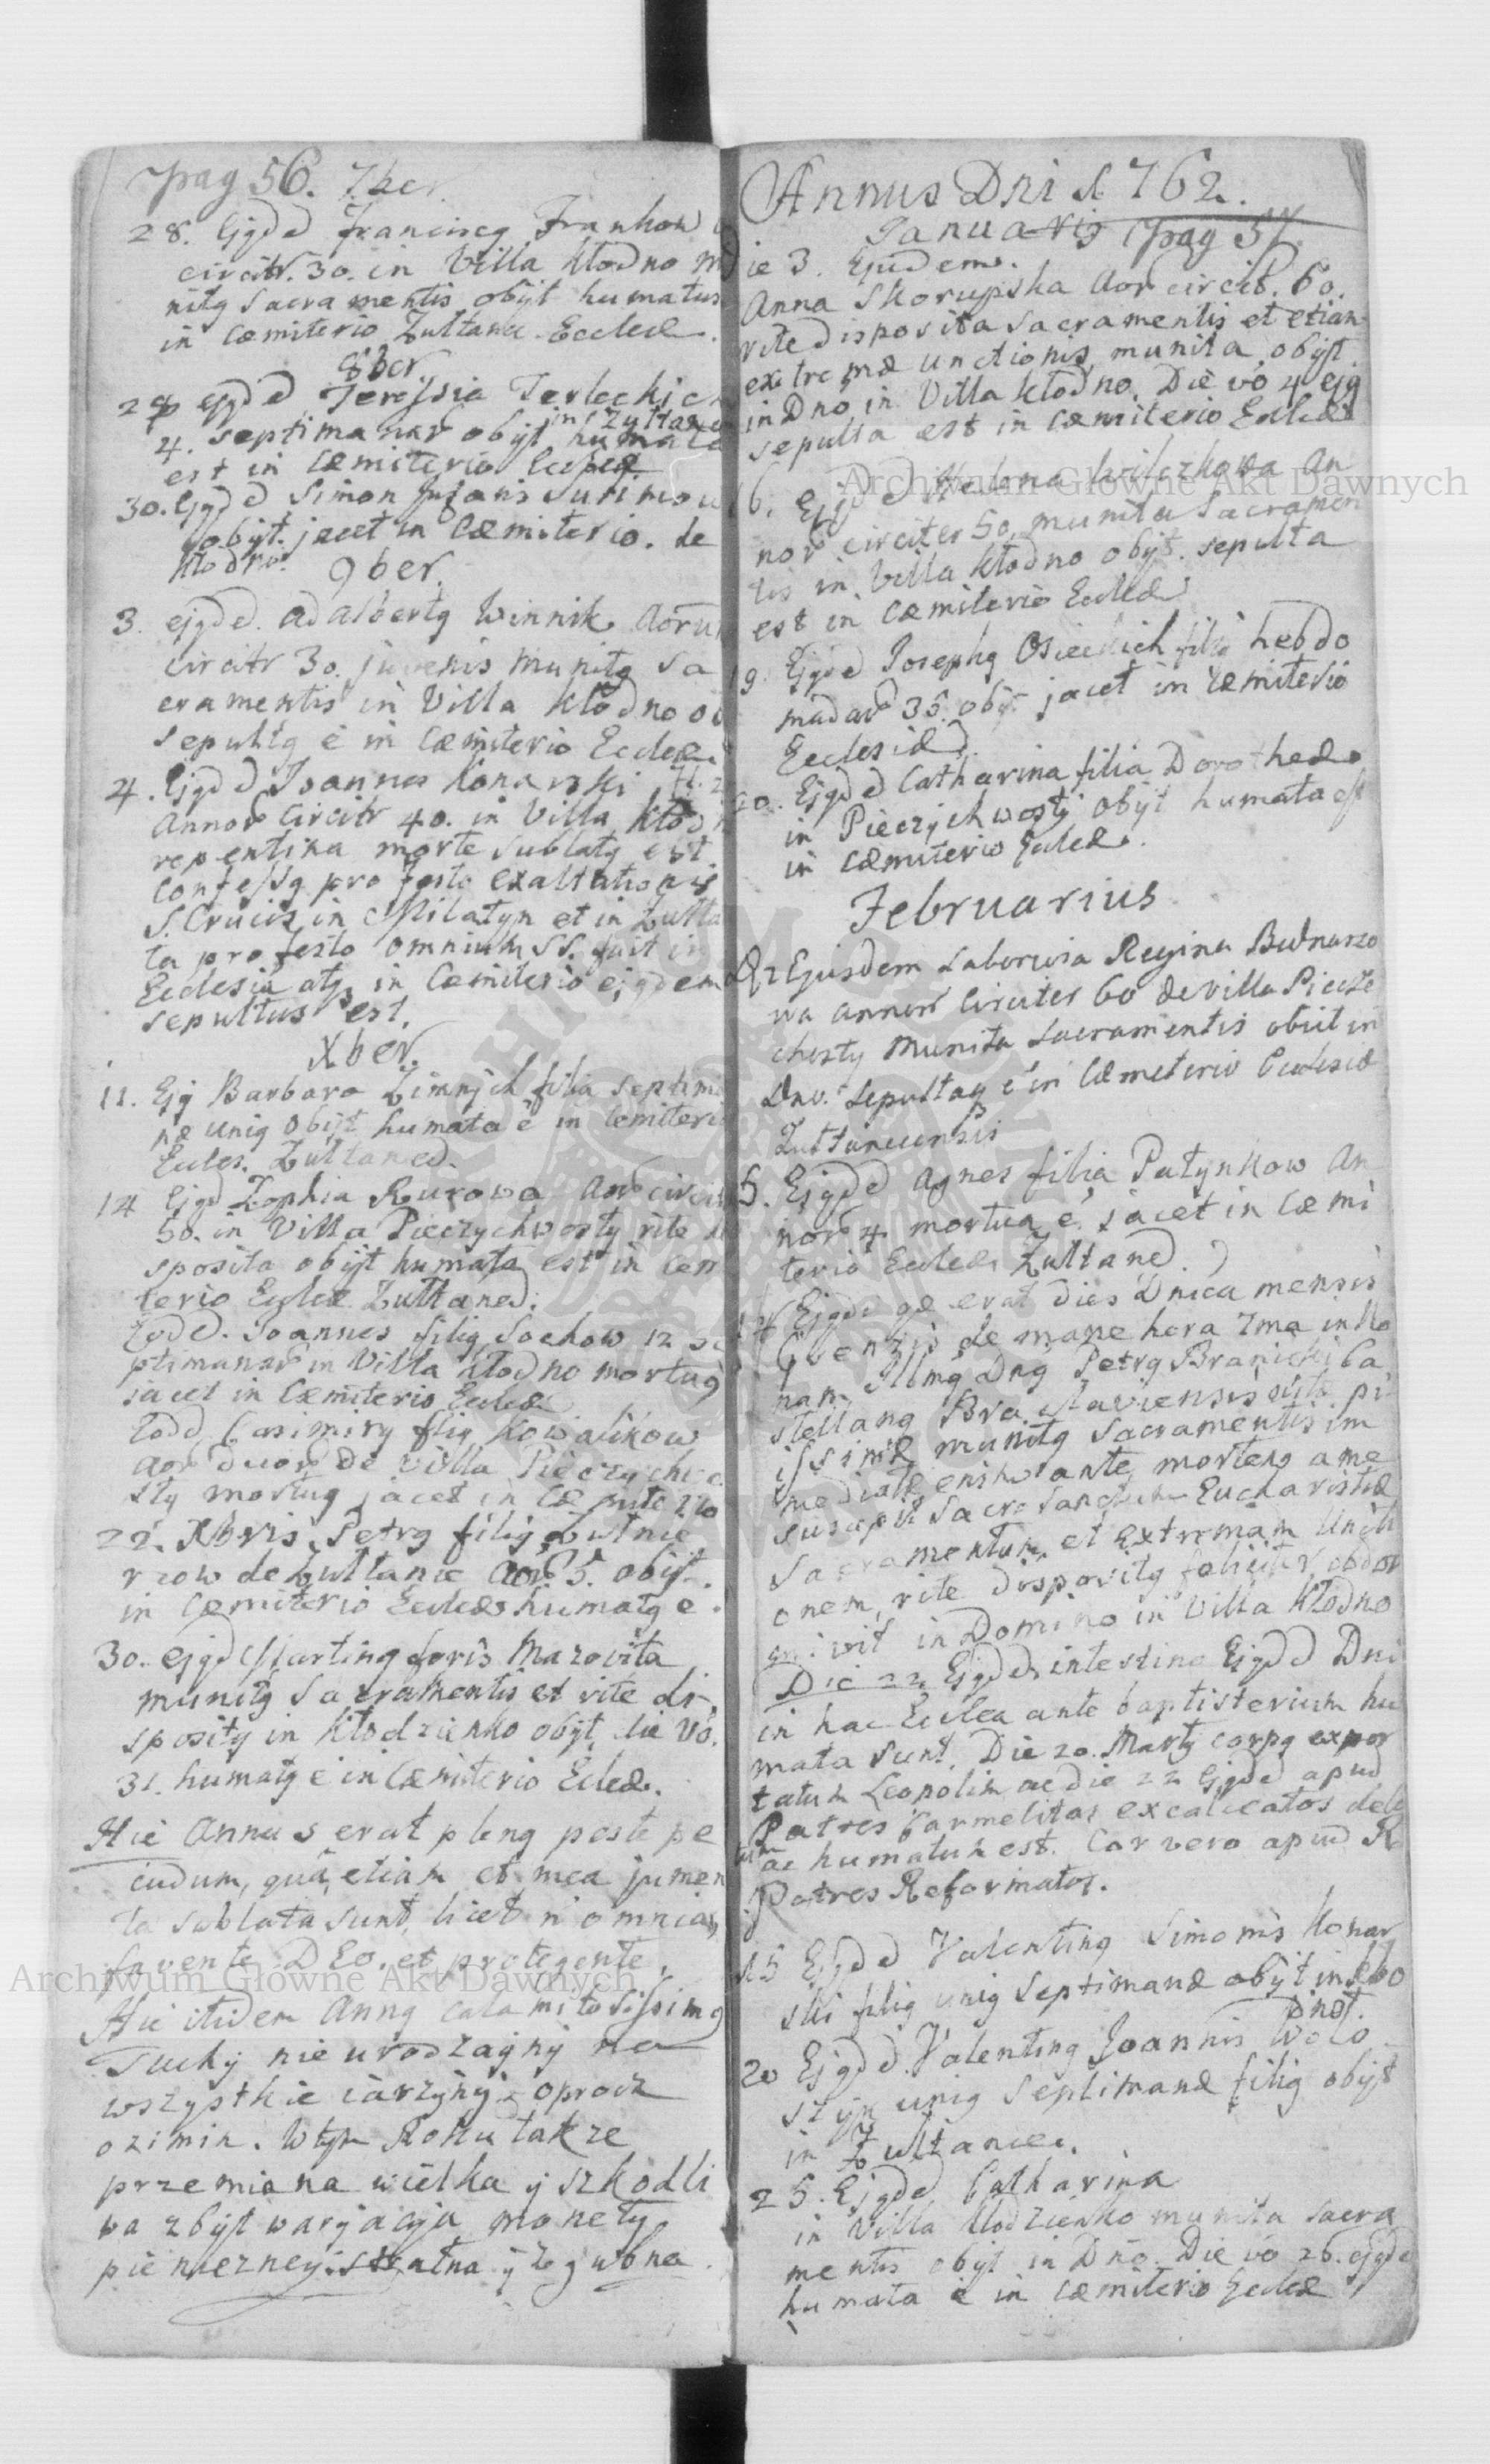 pag 56. 7ber
28. Ejgd d Franciscg Frankow
circitr. 30. in Villa Kłodno
nitg Sacramentis obijt humatus
in Cæmiterio Zułtanc Eccleæ.
8ber
ejgd d Teressia Terleckich
in Zułtanc
4. Septimanar obijt humata
est in Cæmiterio
30. Ejgd d Simon Infans
obijt. jacet in Cæmiterio. de
Kłodno.
9ber.
3. ejgd d. Adalbertg Winnik Aoru
circitr 30. juvenis Munitg Sa
cramentis in Villa Kłodno
Sepultg ē in Cæmiterio Eccleæ
4. Ejgd d Joannes Konarski
Annor Circitr 40. in Villa
repentina morte Sublatg est
Confessg pro Festo Exaltationis
S. Crucis in Milatyn et in Zułta
pro festo omnium SS. fuit in
Ecclesia atq in Cæmiterio ejgdem
sepultus est.
Xber.
11. Ejg Barbara Zimnych filia Septima
næ unig obijt humata ē in Cemiteri
Eccles. Zułtaned.
14 Ejgd Zophia Rurowa Aor circit
50. in Villa Pieczychwosty rite di
sposita obijt humata est in Cem
terio Eccleæ Zułtaned.
Eodd. Joannes filig Sochow 12 se
ptimanar in Villa Kłodno mortug
jacet in Cæmiterio Eccleæ
Eodd Casimirg filig Kowalikow
Aor duor de Villa Pieczychwo
sty mortug jacet in Cæmiterio
22. Xbris Petrg filig Lutnie
rzow de Zułtanie Aor 5. obijt.
in Cæmiterio Eccleæ humatg ē.
30. ejgd Marting Mazovita
munitg Sacramentis et rite di
spositg in Kłodzienko obijt, die vo.
31. humatg ē in Cæmiterio Eccleæ.
Hic Annus erat pleng peste pe
cudum, qua etiam et mea jumen
ta sublata sunt, licet n omnia,
favente DEO, et protegente,
Hic itidem Anng calamitosissimg
Suchy nieurodzayny na
wszystkie iarzyny oprocz
ozimin. W tym Roku także
przemiana wielka y szkodli
wa zbyt waryacyja monety
pieniezney. stratna y zgubna.
Annus Dni 1762.
Januarij pag 57.
ie 3. Ejusdem.
Anna Skorupska Aor circit. 60.
rite disposita Sacramentis et etiam
extremæ unctionis munita obijt
in Dno, in Villa Kłodno. Die vo 4 ejg
sepulta est in Cæmiterio Eccleæ
16. Ejgd d Helena Wilczkowa An
nor circiter 50 munita Sacramen
tis in Villa Kłodno obijt. sepulta
est in Cæmiterio Eccleæ
19. Ejgd d Josephg Osieckich filg hebdo
madar 35. obijt jacet in Cæmiterio
Ecclesiæ.
20. Ejgd d Catharina filia Dorotheæ
in Pieczychwosty obijt humata est
in Cæmiterio Eccleæ.
Februarius
2 Ejusdem Laboriosa Regina Bednarzo
wa annor Circiter 60 de villa Piecze
chosty Munita Sacramentis obiit in
Dno. Sepulta ē in Cæmeterio Ecclesiæ
Zułtancensis
5. Ejgd d Agnes filia Patynkow An
nor 4 mortua ē, jacet in Cæmi
terio Eccleæ Zułtaned.
14 Ejgd d qæ erat dies Dnica mensis
de mane hora 7ma in No
nam Illmg Dng Petrg Branicki Ca
stellang Braclaviensis
issime munitg Sacramentis im
mediate ante mortem a me
suscepit Sacrosanctum Eucharistiæ
Sacramentum, et Extremam Uncti
onem, rite dispositg feliciter obdor
mivit in Domino in Villa Kłodno
Die 22 Ejgd d intestina Ejgd d Dni
in hac Ecclea ante baptisterium hu
mata sunt. Die 20. Martij corpg expor
tatum Leopolim ac die 22 Ejgd d apud
Patres Carmelitas excalceatos dela
tum ac humatum est. Cor vero apud R
Patres Reformatos.
15 Ejgd d Valenting Simonis Konar
ski filig unig Septimanæ obijt in Kło
dno.
20 Ejgd d. Valenting Joannis Woło
szyn unig Septimanæ filig obijt
in Zułtance.
25. Ejgd d Catharina
in Villa Kłodzienko munita Sacra
mentis obijt in Dno. Die vo 26. ejgd
humata ē in Cæmiterio Eccleæ
Archiwum Główne Akt Dawnych
Archiwum Główne Akt Dawnych